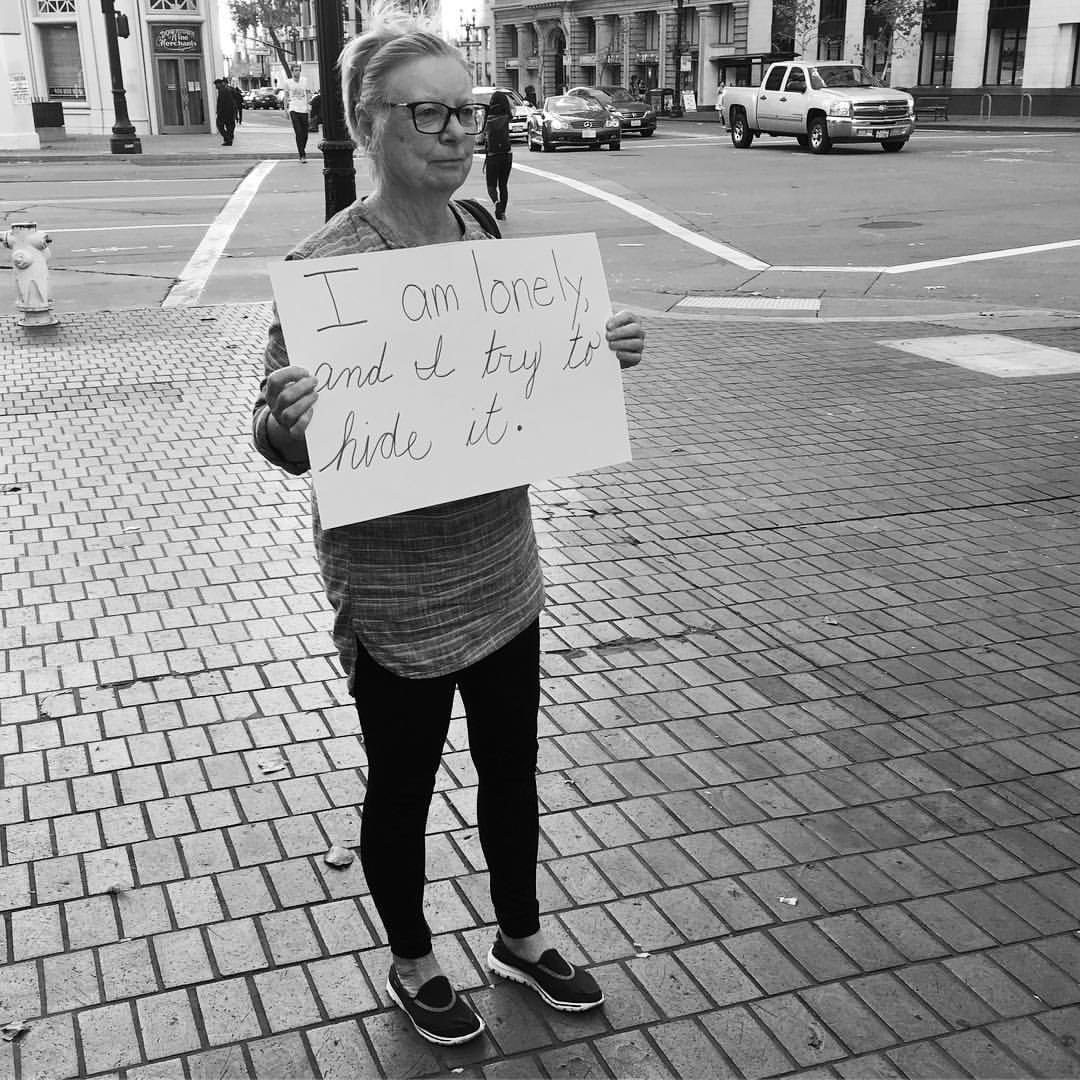 Wine
Merchants
I am lonely,
and I try to
hide it.